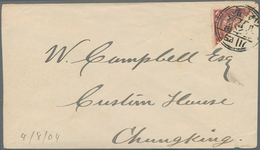 W. Campbell Esq
Custom House
Chungking.
4/8/04